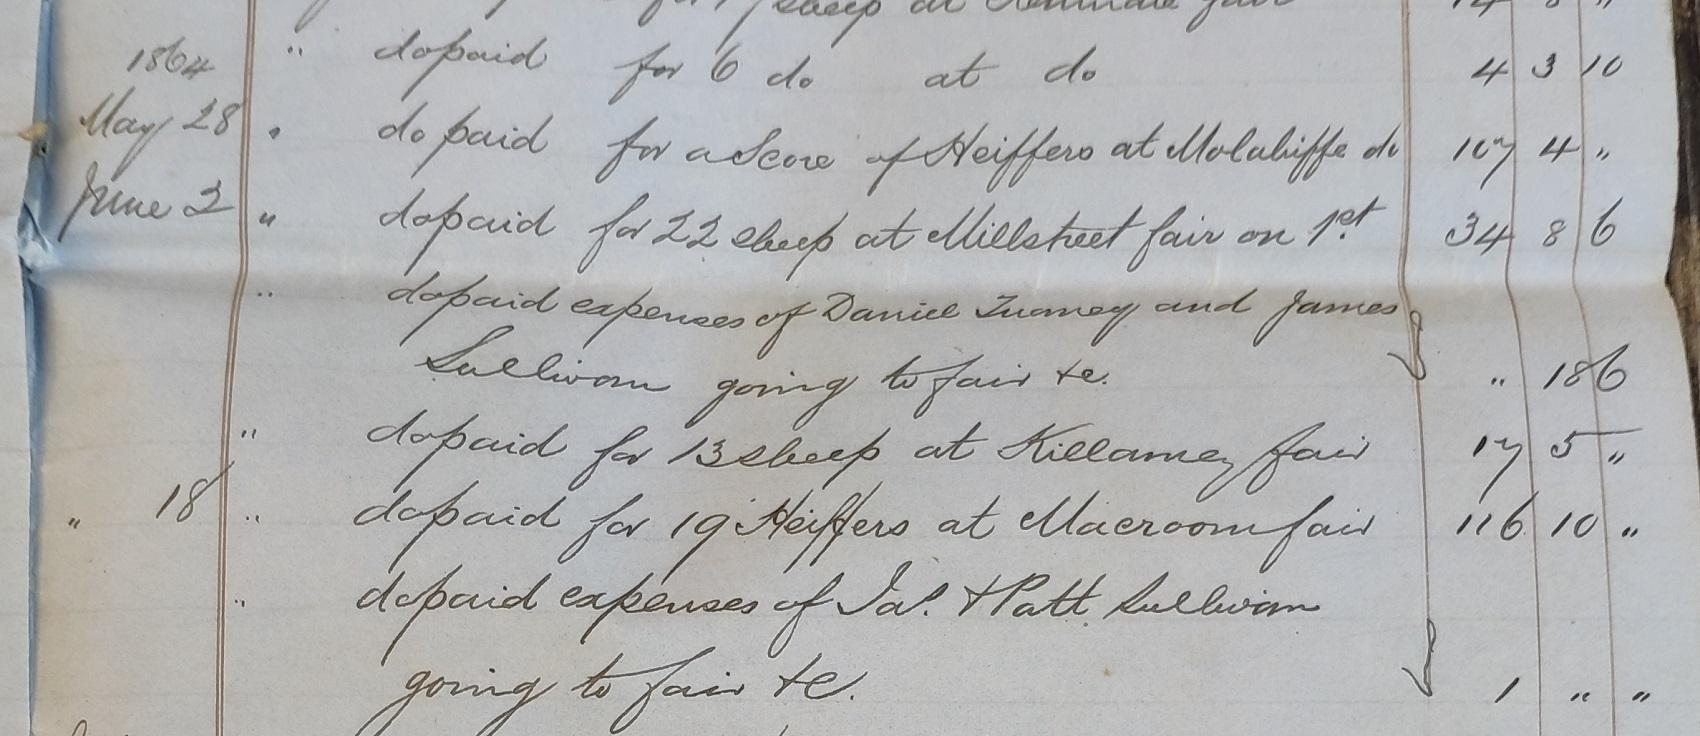 sheep at fair 14 8 "
1864 " do paid for 6 do at do 4 3 10
May 28 " do paid for a Score of Heiffers at Molahiffe do 107 4 "
June 2 " do paid for 22 sheep at Millstreet fair on 1st 34 8 6
" do paid expenses of Daniel Tuomey and James
Sullivan going to fair &c. " 18 6
" do paid for 13 sheep at Killarney fair 17 5 "
" 18 " do paid for 19 Heiffers at Macroom fair 116 10 "
" do paid expenses of Jas. & Patt Sullivan
going to fair &c. 1 " "